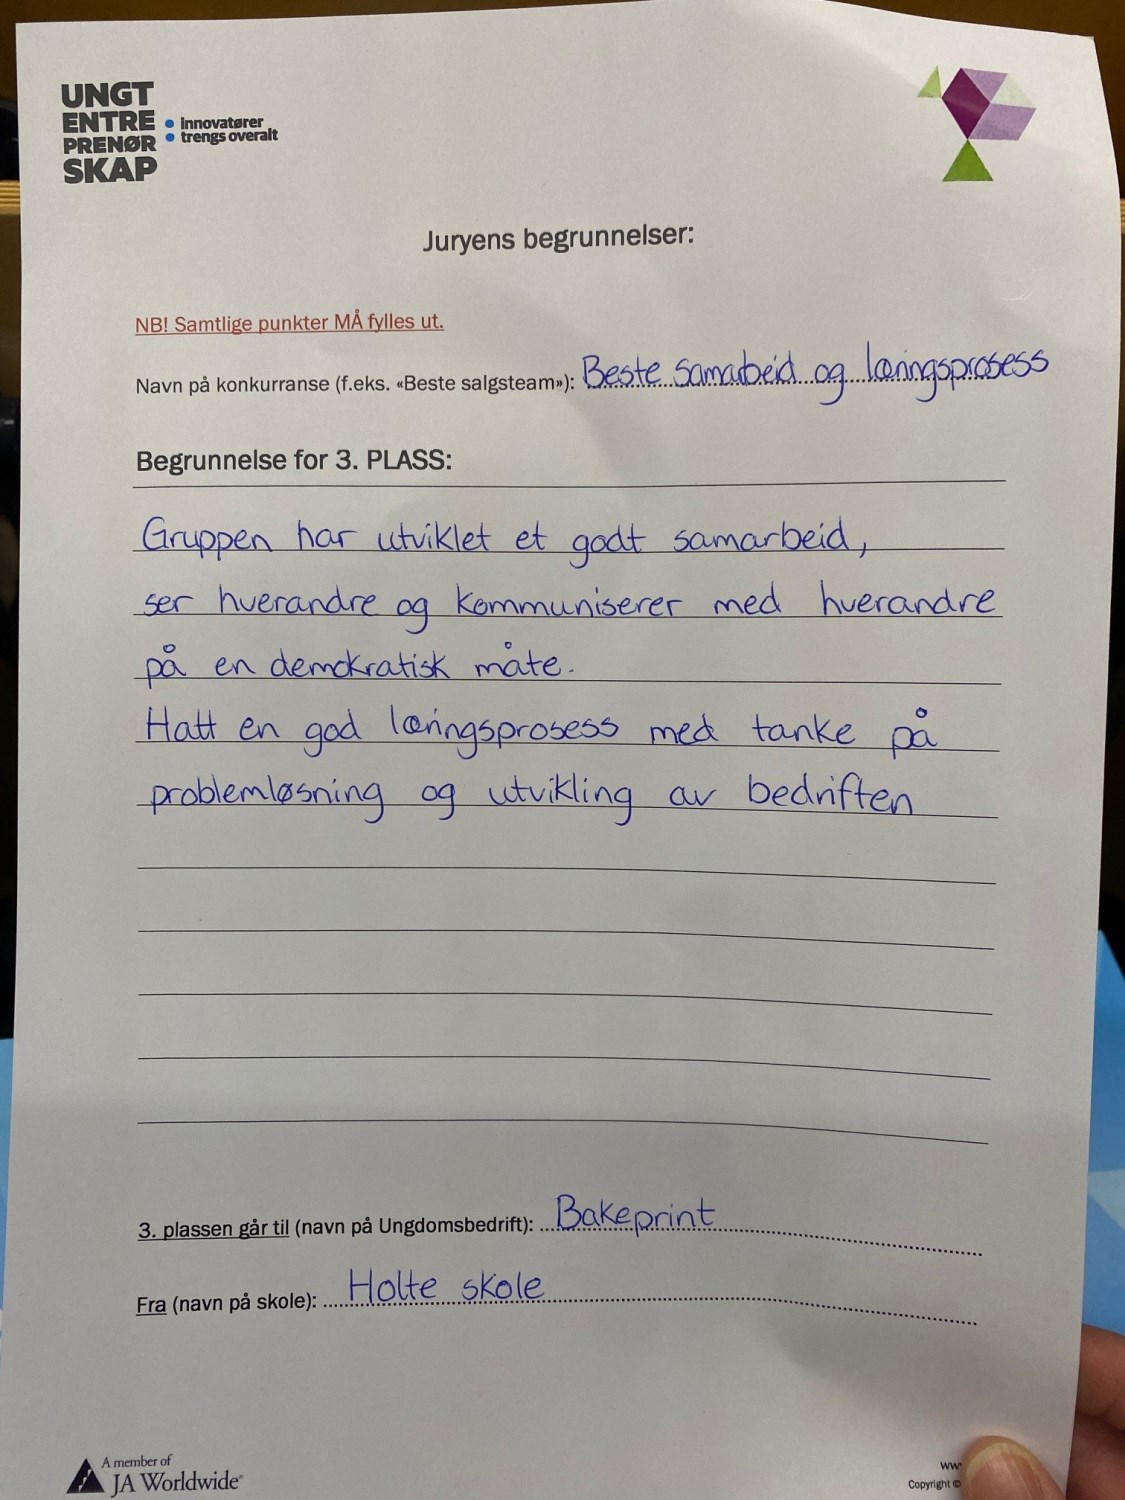 UNGT
ENTRE
PRENØR
SKAP
innovatører
trengs overalt
Juryens begrunnelser:
NB! Samtlige punkter MÅ fylles ut.
Navn på konkurranse (f.eks. «Beste salgsteam»): Beste samarbeid og læringsprosess
Begrunnelse for 3. PLASS:
Gruppen har utviklet et godt samarbeid,
ser hverandre og kommuniserer med hverandre
på en demokratisk måte.
Hatt en god læringsprosess med tanke på
problemløsning og utvikling av bedriften
3. plassen går til (navn på Ungdomsbedrift): Bakeprint
Fra (navn på skole): Holte skole
A member of
JA Worldwide®
Copyright ©